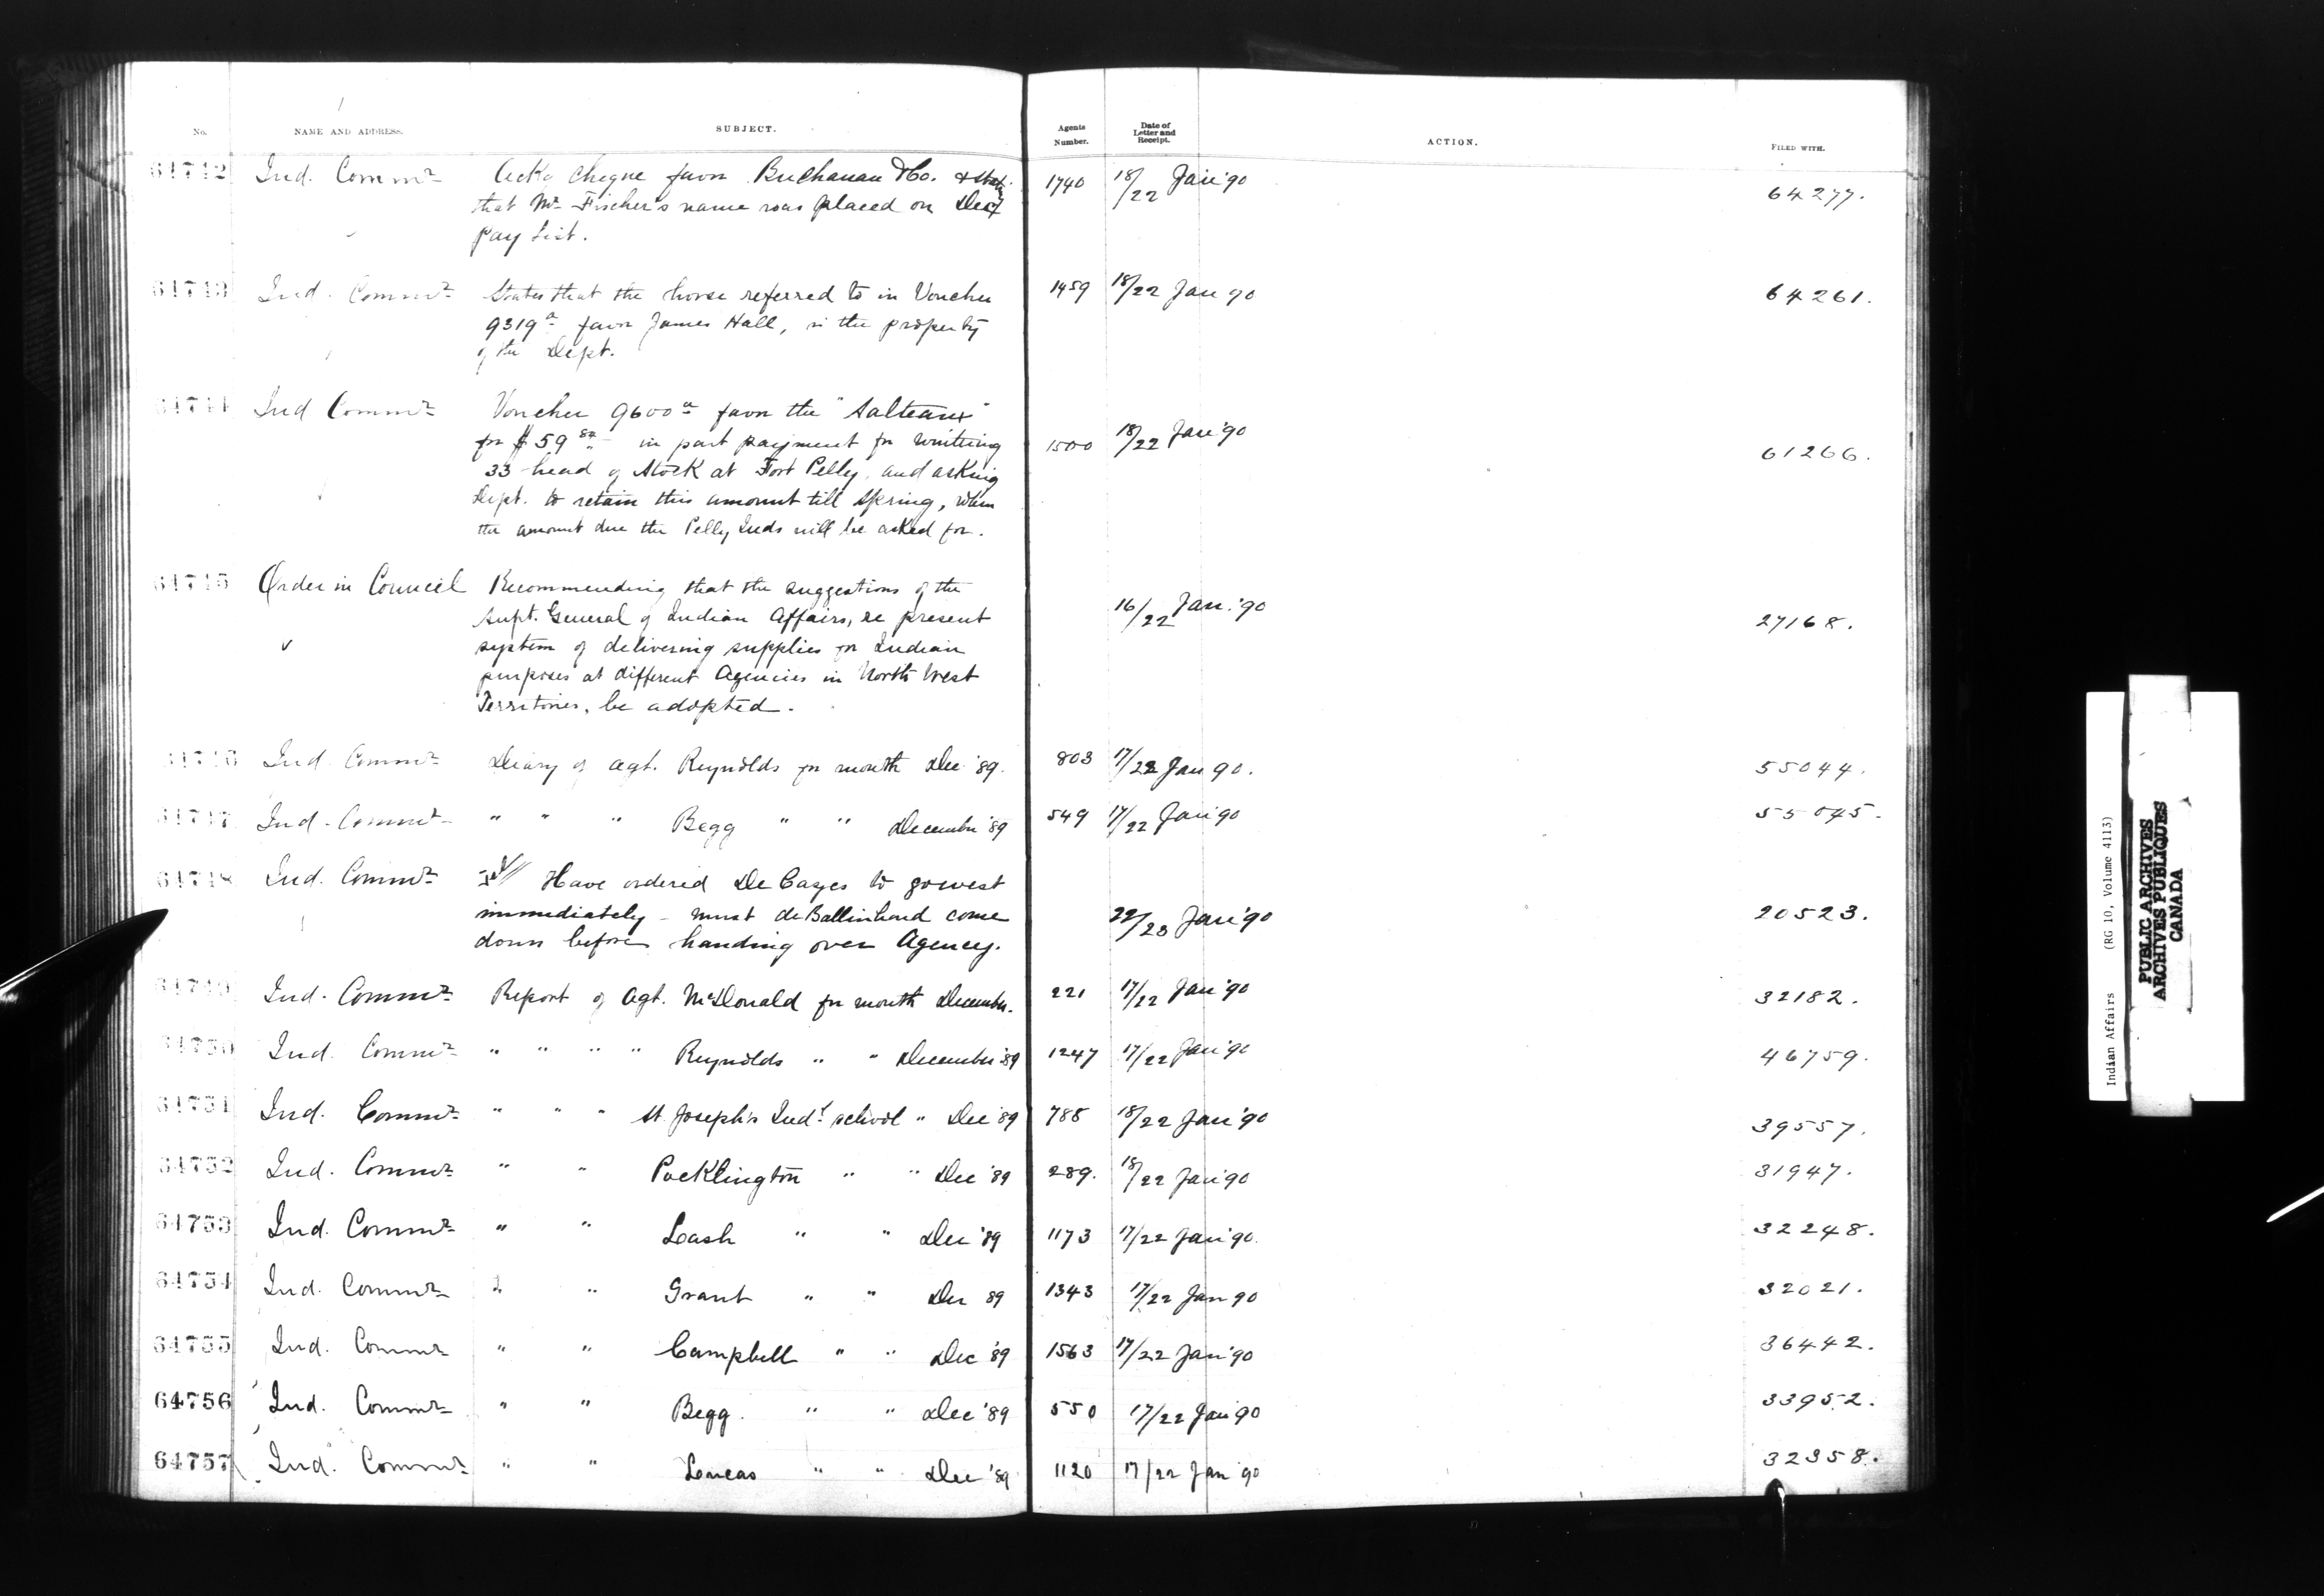 No. NAME AND ADDRESS. SUBJECT. Agents Number. Date of Letter and Receipt. ACTION. FILED WITH.
64742 Ind. Commr Ackg cheque favor Buchanan & Co. & stating 1740 18/22 Jan '90 64277.
that Mr Fischer's name was placed on Dec
pay list.
64743 Ind. Commr States that the horse referred to in Voucher 1459 18/22 Jan 90 64261.
9319a favor James Hall, is the property
of the Dept.
64744 Ind Commr Voucher 9600a favor the "Salteaux"
for $59 in part payment for wintering 1500 18/22 Jan '90 61266.
33 head of Stock at Fort Pelly, and asking
Dept. to retain this amount till Spring, when
the amount due the Pelly Inds will be asked for.
64745 Order in Council Recommending that the suggestions of the
Supt. General of Indian Affairs, re present 16/22 Jan. '90 27168.
system of delivering supplies for Indian
purposes at different Agencies in North West
Territories, be adopted.
64746 Ind. Commr Diary of agt. Reynolds for month Dec '89. 803 17/22 Jan 90. 55044.
64747 Ind. Commr " " " Begg " " December '89 549 17/22 Jan '90 55045.
64748 Ind. Commr Have ordered De Cazes to go west
immediately - must de Ballinhard come 22/23 Jan '90 20523.
down before handing over Agency.
64749 Ind. Commr Report of Agt. McDonald for month December. 221 17/22 Jan '90 32182.
64750 Ind. Commr " " " " Reynolds " " December '89 1247 17/22 Jan '90 46759.
64751 Ind. Commr " " " St. Joseph's Indl school " Dec '89 788 18/22 Jan '90 39557.
64752 Ind. Commr " " Pocklington " " Dec '89 289. 18/22 Jan '90 31947.
64753 Ind. Commr " " Leash " " Dec '89 1173 17/22 Jan '90. 32248.
64754 Ind. Commr " " Grant " " Dec 89 1343 17/22 Jan 90 32021.
64755 Ind. Commr " " Campbell " " Dec '89 1563 17/22 Jan '90 36442.
64756 Ind. Commr " " Begg. " " Dec '89 550 17/22 Jan '90 33952.
64757 Ind. Commr " " Loucas " " Dec '89 1120 17/22 Jan '90 32358.
Indian Affairs (RG 10, Volume 4113)
PUBLIC ARCHIVES
ARCHIVES PUBLIQUES
CANADA